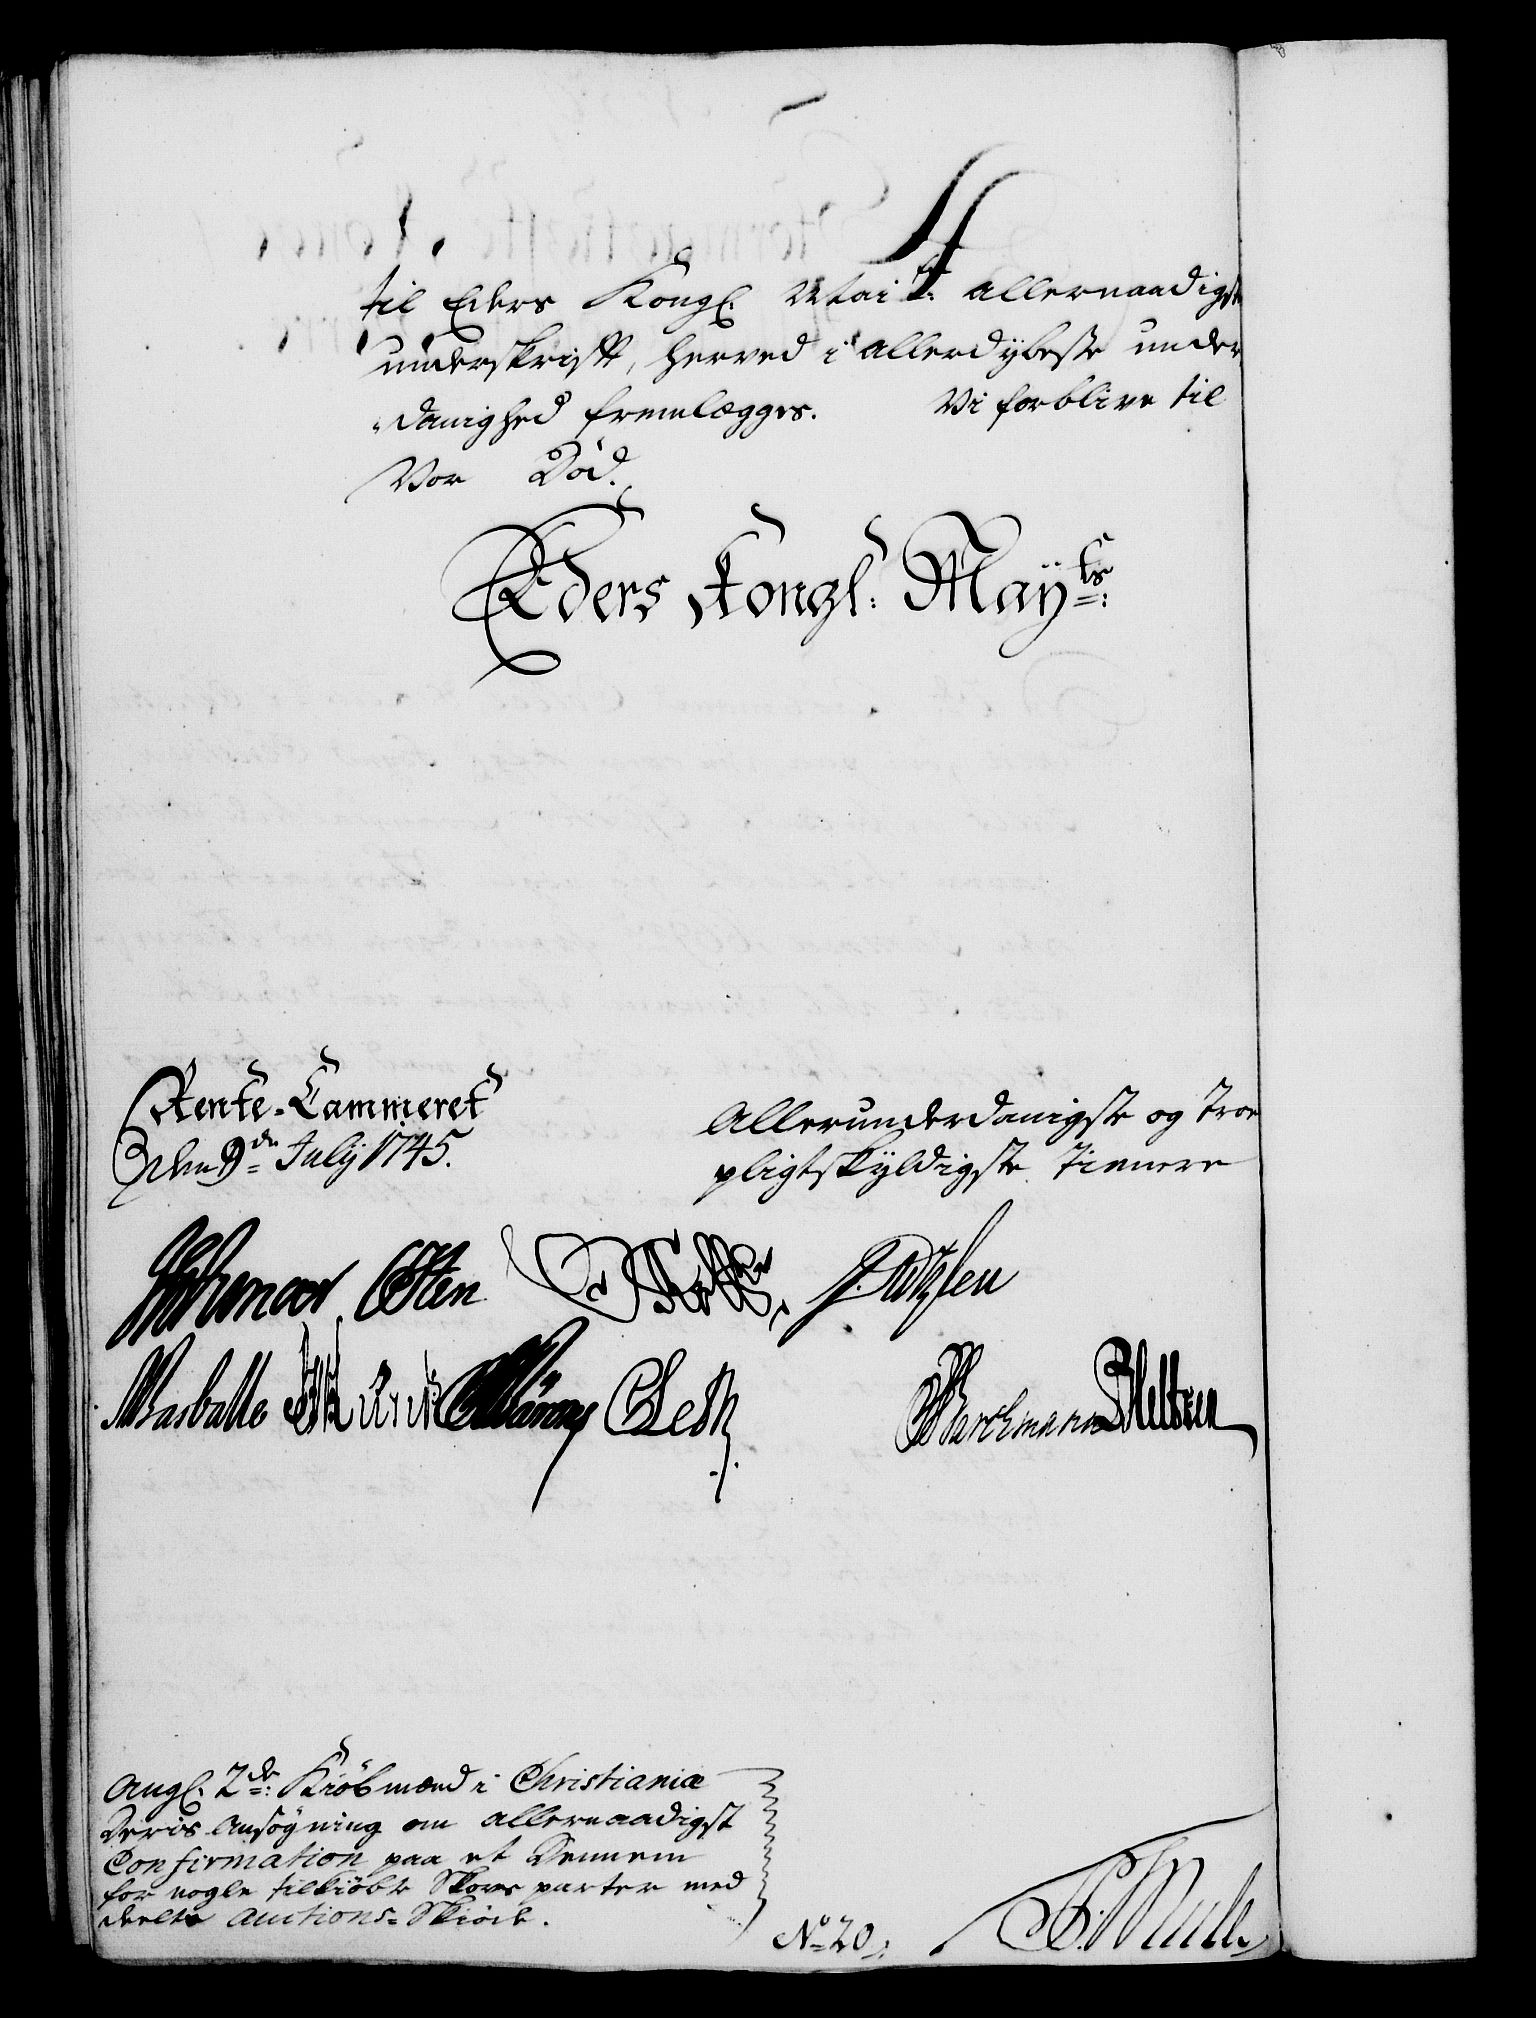 til Eders Kongl. Mai.ts allernaadigste
underskrift, herved i allerdybeste under
„danighed fremlægges. Vi forblive til
Vor Død.
Eders Kongl: Mayts:
Rente-Cammeret
den 9de July 1745.
Allerunderdanigste og Troe
pligtskyldigste Tienere
Osten
Basballe Leth Berchmann
Angl. 2de: Kiøbmænd i Christiania
Deris Ansøgning om allernaadigst
Confirmation paa et Dennem
for nogle tilkiøbte Skovs parter med
deelte Auctions-Skiøde.
No 20.